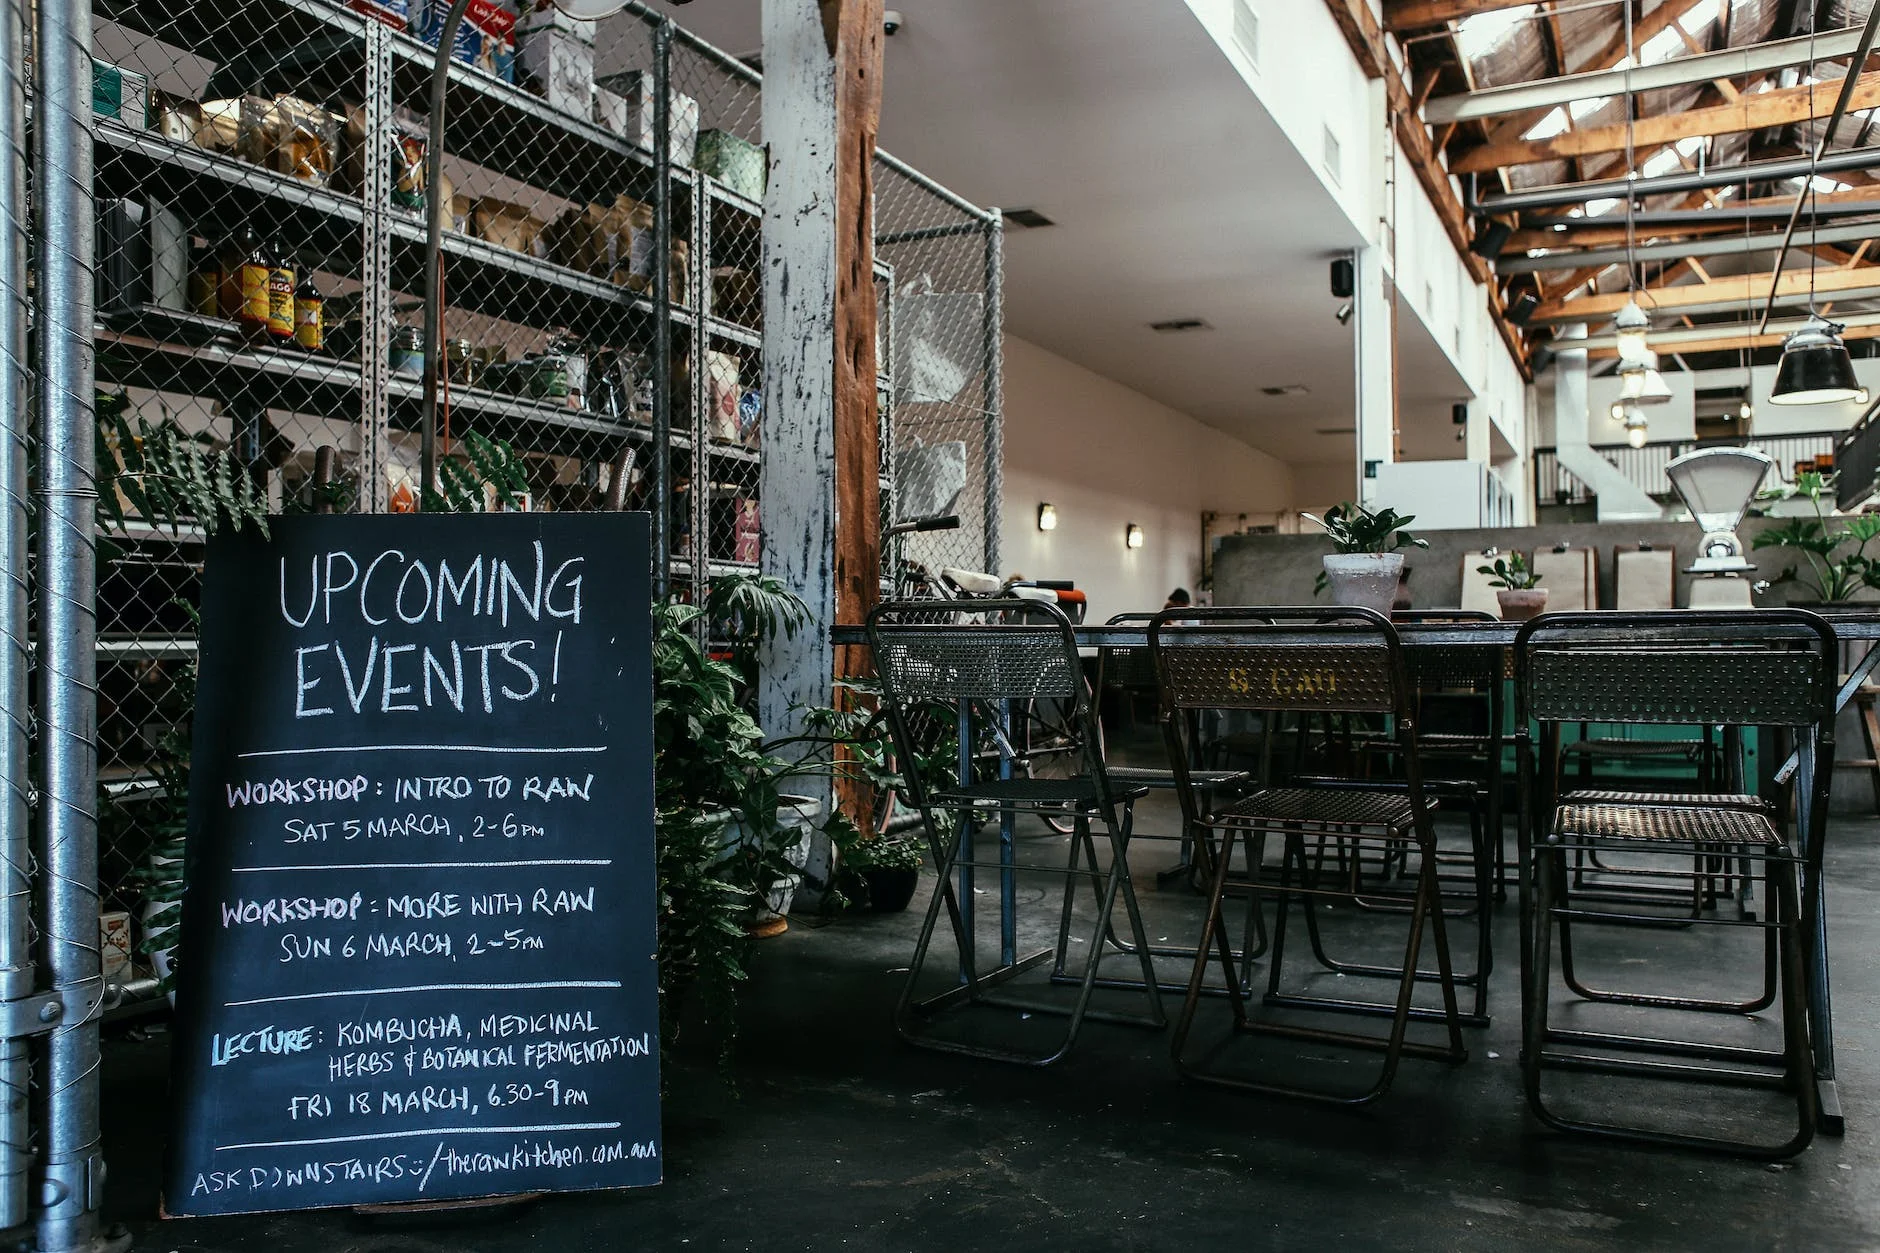 UPCOMING
EVENTS!
WORKSHOP: INTRO TO RAW
SAT 5 MARCH, 2-6PM
WORKSHOP: MORE WITH RAW
SUN 6 MARCH, 2-5PM
LECTURE: KOMBUCHA, MEDICINAL
HERBS & BOTANICAL FERMENTATION
FRI 18 MARCH, 6.30-9PM
ASK DOWNSTAIRS :) / therawkitchen.com.au